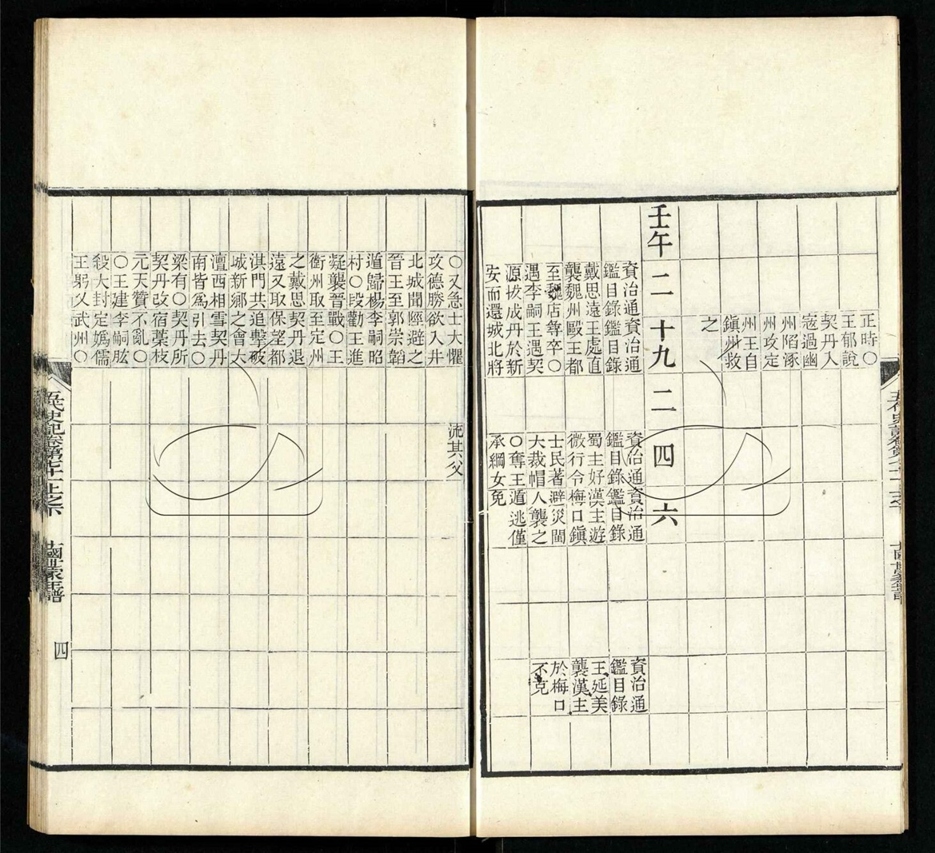 正時〇
王郁說
契丹入
寇過幽
州陷涿
州攻定
州王自
鎮州救
之
壬午二十九二四六
資治通資治通
鑑目錄鑑目錄
戴思遠王處直
襲魏州毆王都
至魏店尋卒〇
遇李嗣王遇契
源拔成丹於新
安而還城北將
資治通資治通
鑑目錄鑑目錄
蜀主好漢主遊
微行令梅口鎮
士民著避災閩
大裁帽人襲之
〇奪王道逃僅
承綱女免
資治通
鑑目錄
王延美
襲漢主
於梅口
不克
沛其父
〇又急士大懼
攻德勝欲入井
北城聞陘避之
晉王至郭崇韜
道歸楊李嗣昭
村〇段勸王進
凝襲晉戰〇王
衛州取至定州
之戴思契丹退
遠又取保望都
淇門共追擊破
城新鄉之會大
澶西相雪契丹
南皆為引去〇
梁有〇契丹所
契丹改宿藁枝
元天贊不亂〇
〇王建李嗣肱
殺大封定媯儒
王躬乂武州〇
五代史記卷第七十一上之下 十國世家年譜 四